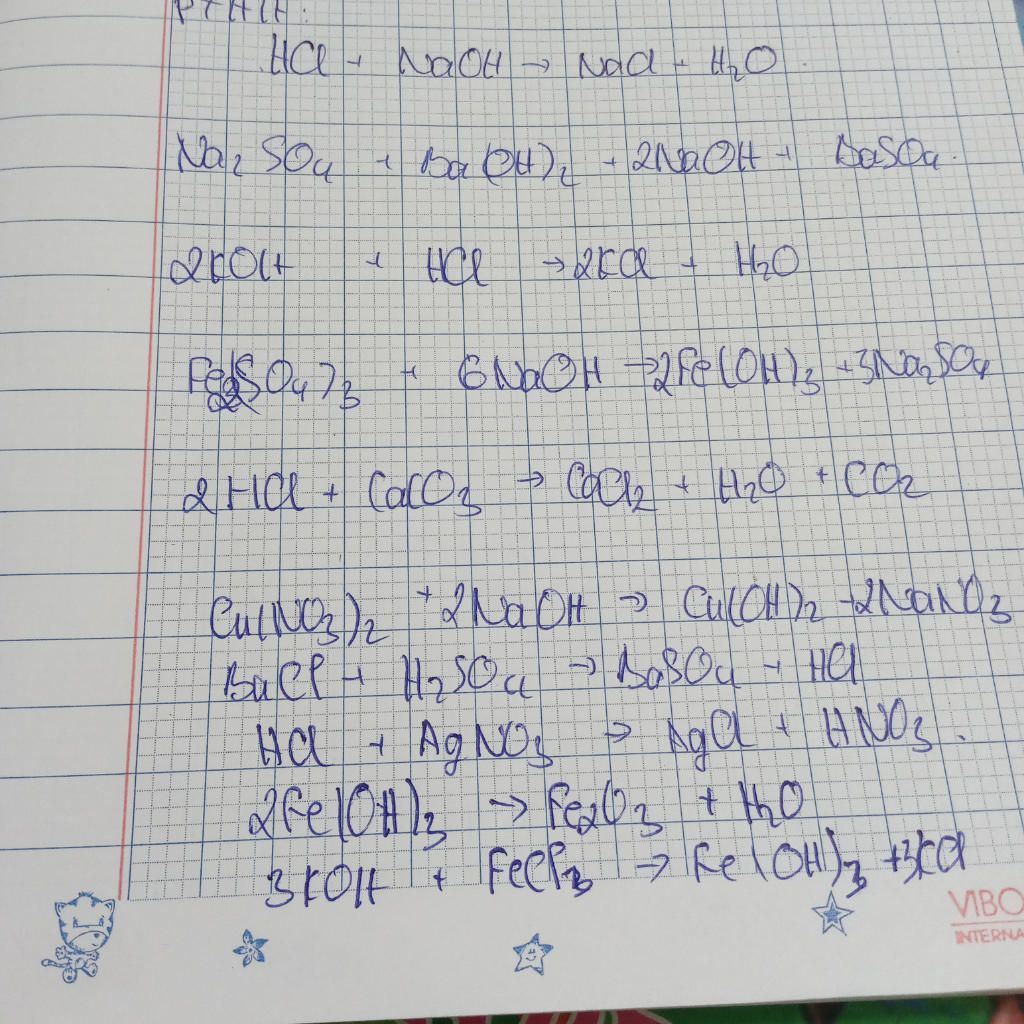 PTHH:
HCl + NaOH → NaCl + H₂O.
Na₂SO₄ + Ba(OH)₂ + 2NaOH + BaSO₄.
2KOH + HCl → 2KCl + H₂O
Fe₂(SO₄)₃ + 6NaOH → 2Fe(OH)₃ + 3Na₂SO₄
2HCl + CaCO₃ → CaCl₂ + H₂O + CO₂
Cu(NO₃)₂ + 2NaOH → Cu(OH)₂ + 2NaNO₃
BaCl + H₂SO₄ → BaSO₄ + HCl
HCl + AgNO₃ → AgCl + HNO₃.
2Fe(OH)₃ → Fe₂O₃ + H₂O
3KOH + FeCl₃ → Fe(OH)₃ + 3KCl
VIBO
INTERNA